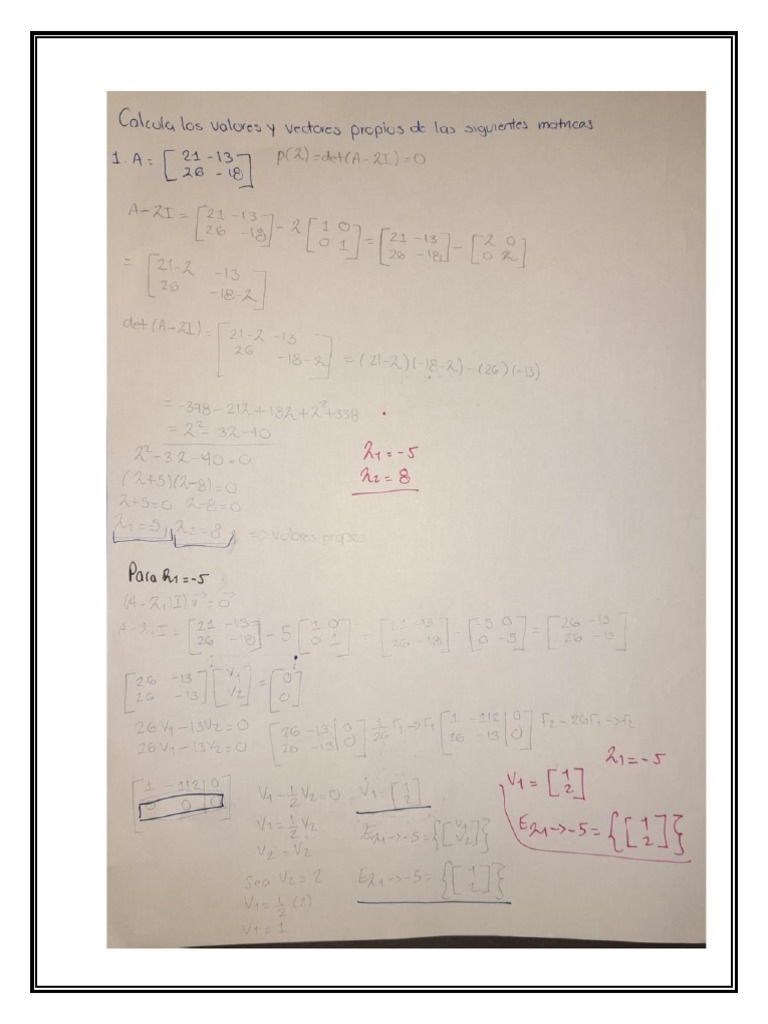 Calcula los valores y vectores propios de las siguientes matrices
1. A = [21 -13
26 -18] p(λ) = det(A-λI) = 0
A-λI = [21 -13
26 -18] - λ [1 0
0 1] = [21 -13
26 -18] - [λ 0
0 λ]
= [21-λ -13
26 -18-λ]
det(A-λI) = [21-λ -13
26 -18-λ] = (21-λ)(-18-λ) - (26)(-13)
= -378 - 21λ + 18λ + λ² + 338
= λ² - 3λ - 40
λ² - 3λ - 40 = 0
(λ+5)(λ-8) = 0
λ+5=0 λ-8=0
λ1 = 5, λ2 = -8 => valores propios
λ1 = -5
λ2 = 8
Para λ1 = -5
(A-λ1I) v = 0
A-λ1I = [21 -13
26 -18] - 5 [1 0
0 1] = [21 -13
26 -18] - [-5 0
0 -5] = [26 -13
26 -13]
[26 -13
26 -13] [V1
V2] = [0
0]
26V1 - 13V2 = 0
26V1 - 13V2 = 0
[26 -13 | 0
26 -13 | 0] 1/26 r1 -> r1 [1 -1/2 | 0
26 -13 | 0] r2 - 26r1 -> r2
[1 -1/2 | 0
0 0 | 0]
V1 - 1/2 V2 = 0
V1 = 1/2 V2
V2 = V2
Sea V2 = 2
V1 = 1/2 (2)
V1 = 1
V1 = [1
2]
Eλ1->-5 = {[V1
V2]}
Eλ1->-5 = {[1
2]}
λ1 = -5
V1 = [1
2]
Eλ1->-5 = {[1
2]}